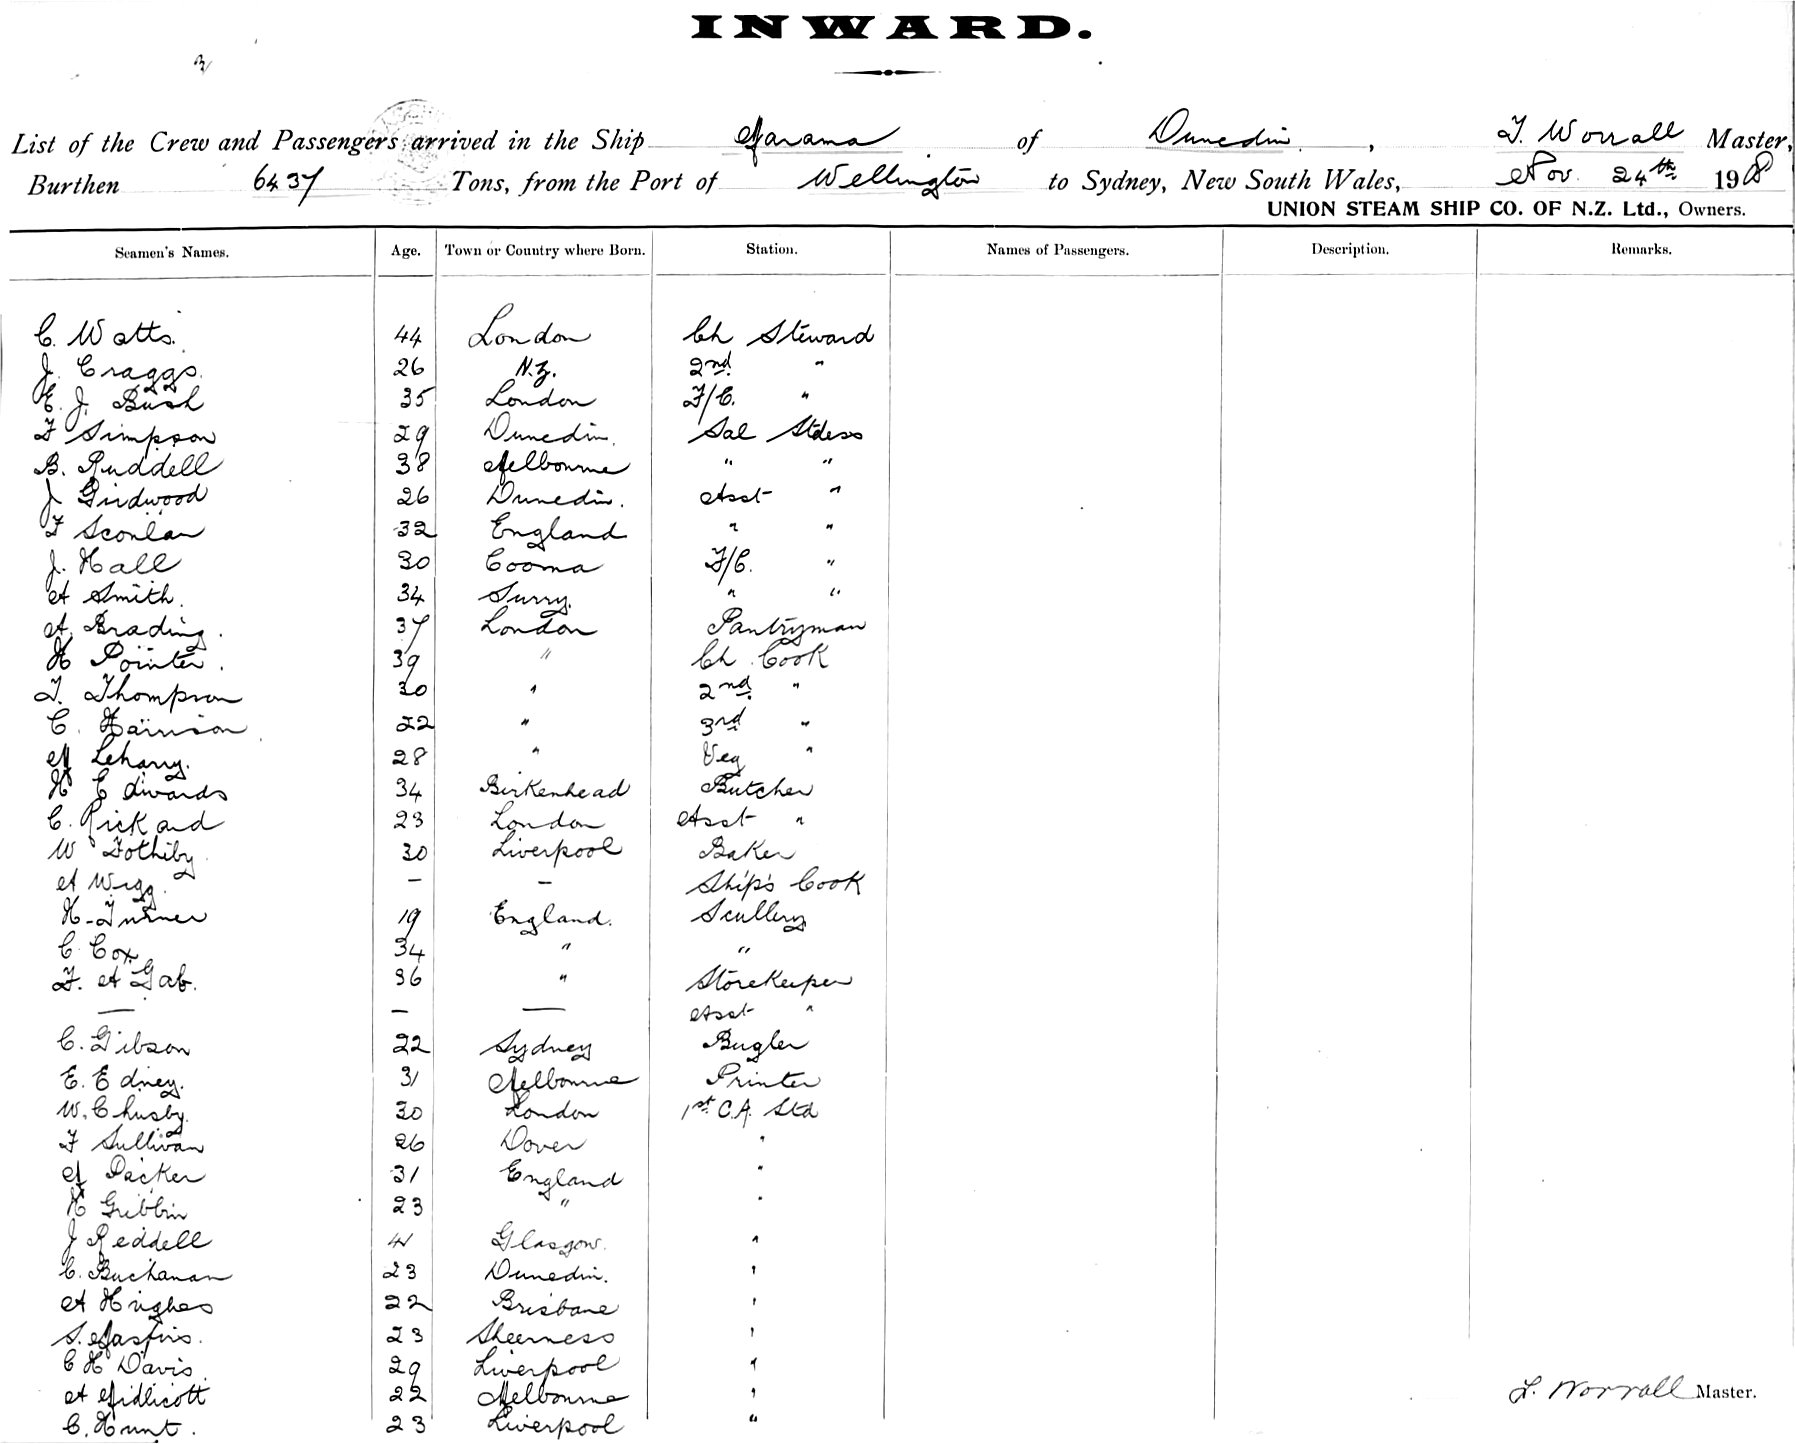 INWARD.
List of the Crew and Passengers arrived in the Ship Marama of Dunedin, T. Worrall Master,
Burthen 6437 Tons, from the Port of Wellington to Sydney, New South Wales, Nov. 24th 198
UNION STEAM SHIP CO. OF N.Z. Ltd., Owners.
Seamen's Names. Age. Town or Country where Born. Station. Names of Passengers. Description. Remarks.
C. Watts. 44 London Ch Steward
J. Craggs. 26 N.Z. 2nd "
E. J. Bush 35 London F/C. "
F Simpson 29 Dunedin. Sal Stdess
B. Ruddell 38 Melbourne " "
J Girdwood 26 Dunedin. Asst "
F Sconlan 32 England " "
J. Hall 30 Cooma F/C. "
A Smith. 34 Surry. " "
A. Brading. 37 London Pantryman
H Pointer. 39 " Ch Cook
T. Thompson 30 " 2nd "
C. Harrison 22 " 3rd "
M Leharry. 28 " Veg "
H Edwards 34 Birkenhead Butcher
C. Rickard 23 London Asst "
W Fothiby 30 Liverpool Baker
A Wigg. — — Ship's Cook
H. Turner 19 England. Scullery
C Cox 34 " "
F. A Gab. 36 " Storekeeper
— — — Asst "
C. Gibson 22 Sydney Bugler
E. Edney. 31 Melbourne Printer
W. Chusby. 30 London 1st C.A. Std
F Sullivan 26 Dover "
M Packer 31 England "
H Gribbin 23 " "
J Reddell 41 Glasgow. "
C. Buchanan 23 Dunedin. "
A Hughes 22 Brisbane "
S. 23 Sheerness "
C H Davis. 29 Liverpool "
A Midlicott 22 Melbourne "
C. Hunt. 23 Liverpool "
T. Worrall Master.